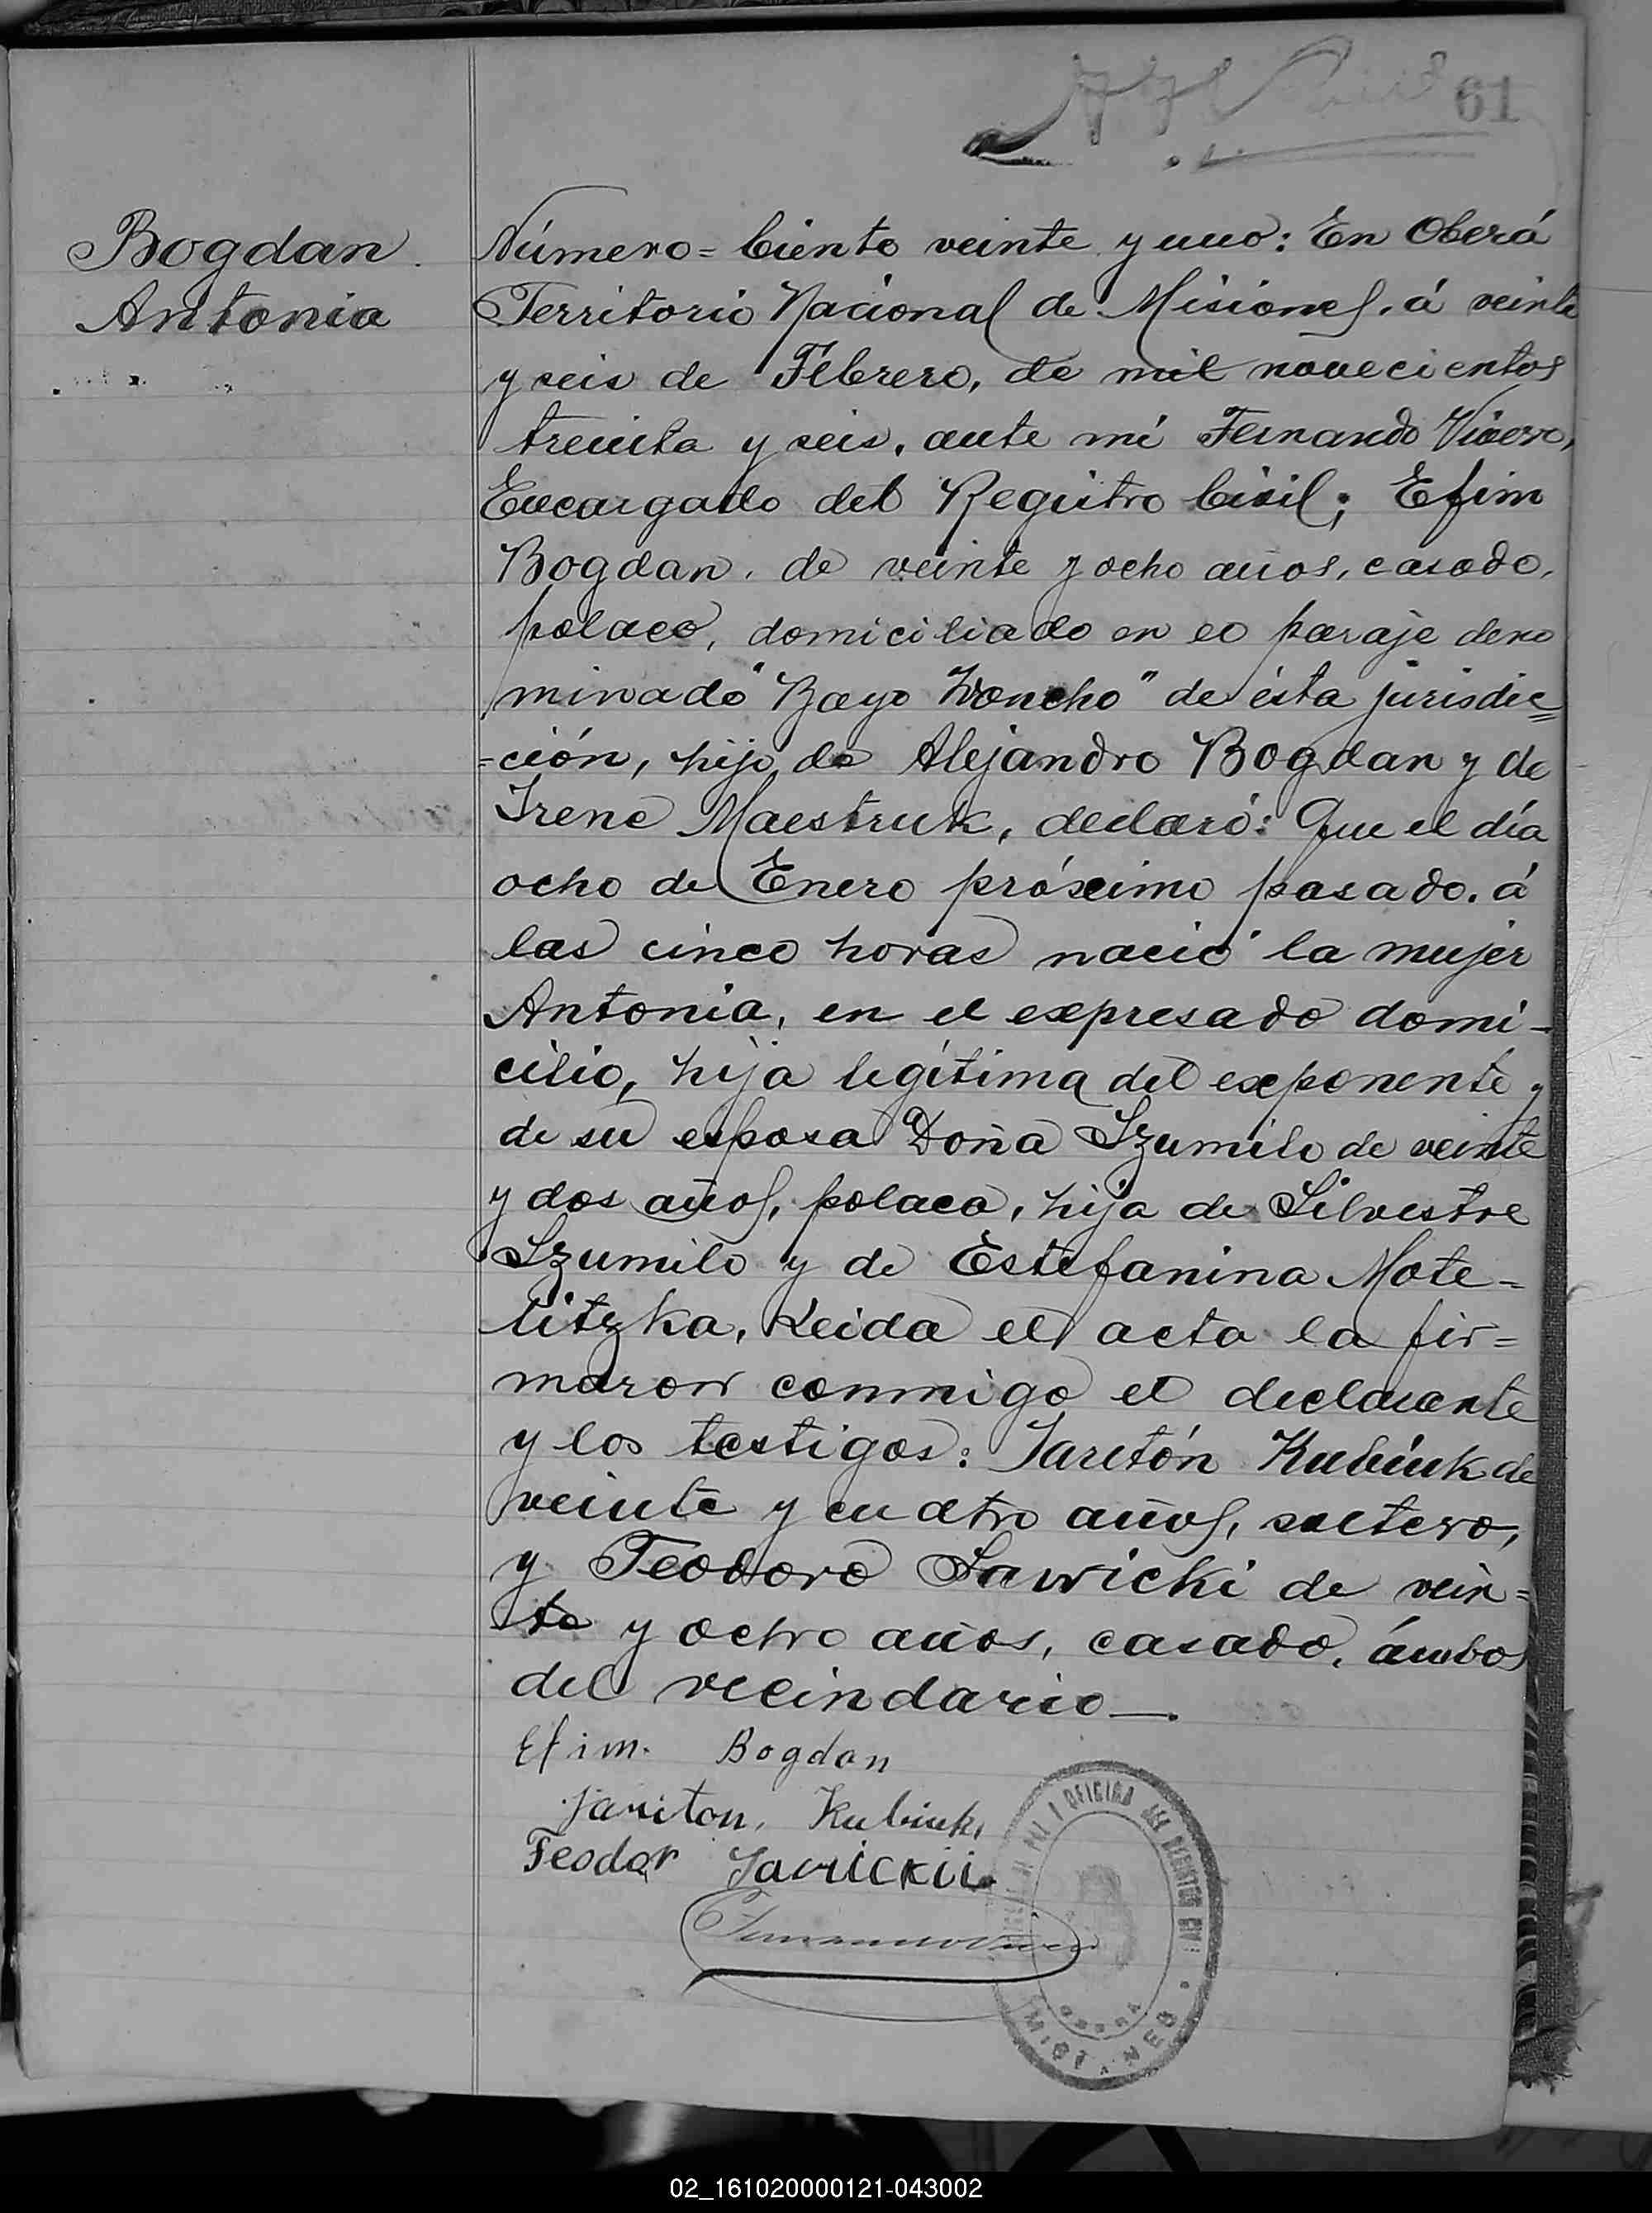 61
Bogdan
Antonia
Número = Ciento veinte y uno: En Oberá
Territorio Nacional de Misiones, á veinte
y seis de Febrero, de mil novecientos
treinta y seis, ante mí Fernando Vivero,
Encargado del Registro Civil; Efim
Bogdan, de veinte y ocho años, casado,
polaco, domiciliado en eo paraje deno
minado "Bayo Troncho" de ésta jurisdic=
=ción, hijo de Alejandro Bogdan y de
Irene Maestruk, declaró: Que el día
ocho de Enero próximo pasado, á
las cinco horas nació la mujer
Antonia, en el expresado domi-
cilio, hija legítima del exponente y
de su esposa Doña Szumilo de veinte
y dos años, polaca, hija de Silvestre
Szumilo y de Estefanina Mote=
litzka, Leida el acta la fir=
maron conmigo el declarante
y los testigos: Jaritón Kubiuk de
veinte y cuatro años, soltero,
y Teodoro Sawicki de vein=
te y ocho años, casado, ámbos
del vecindario—.
Efim. Bogdan
Jariton, Kubiuk,
Teodor Sawickii
OFICINA DEL REGISTRO CIVIL
OBERA
MISIONES
02_161020000121-043002